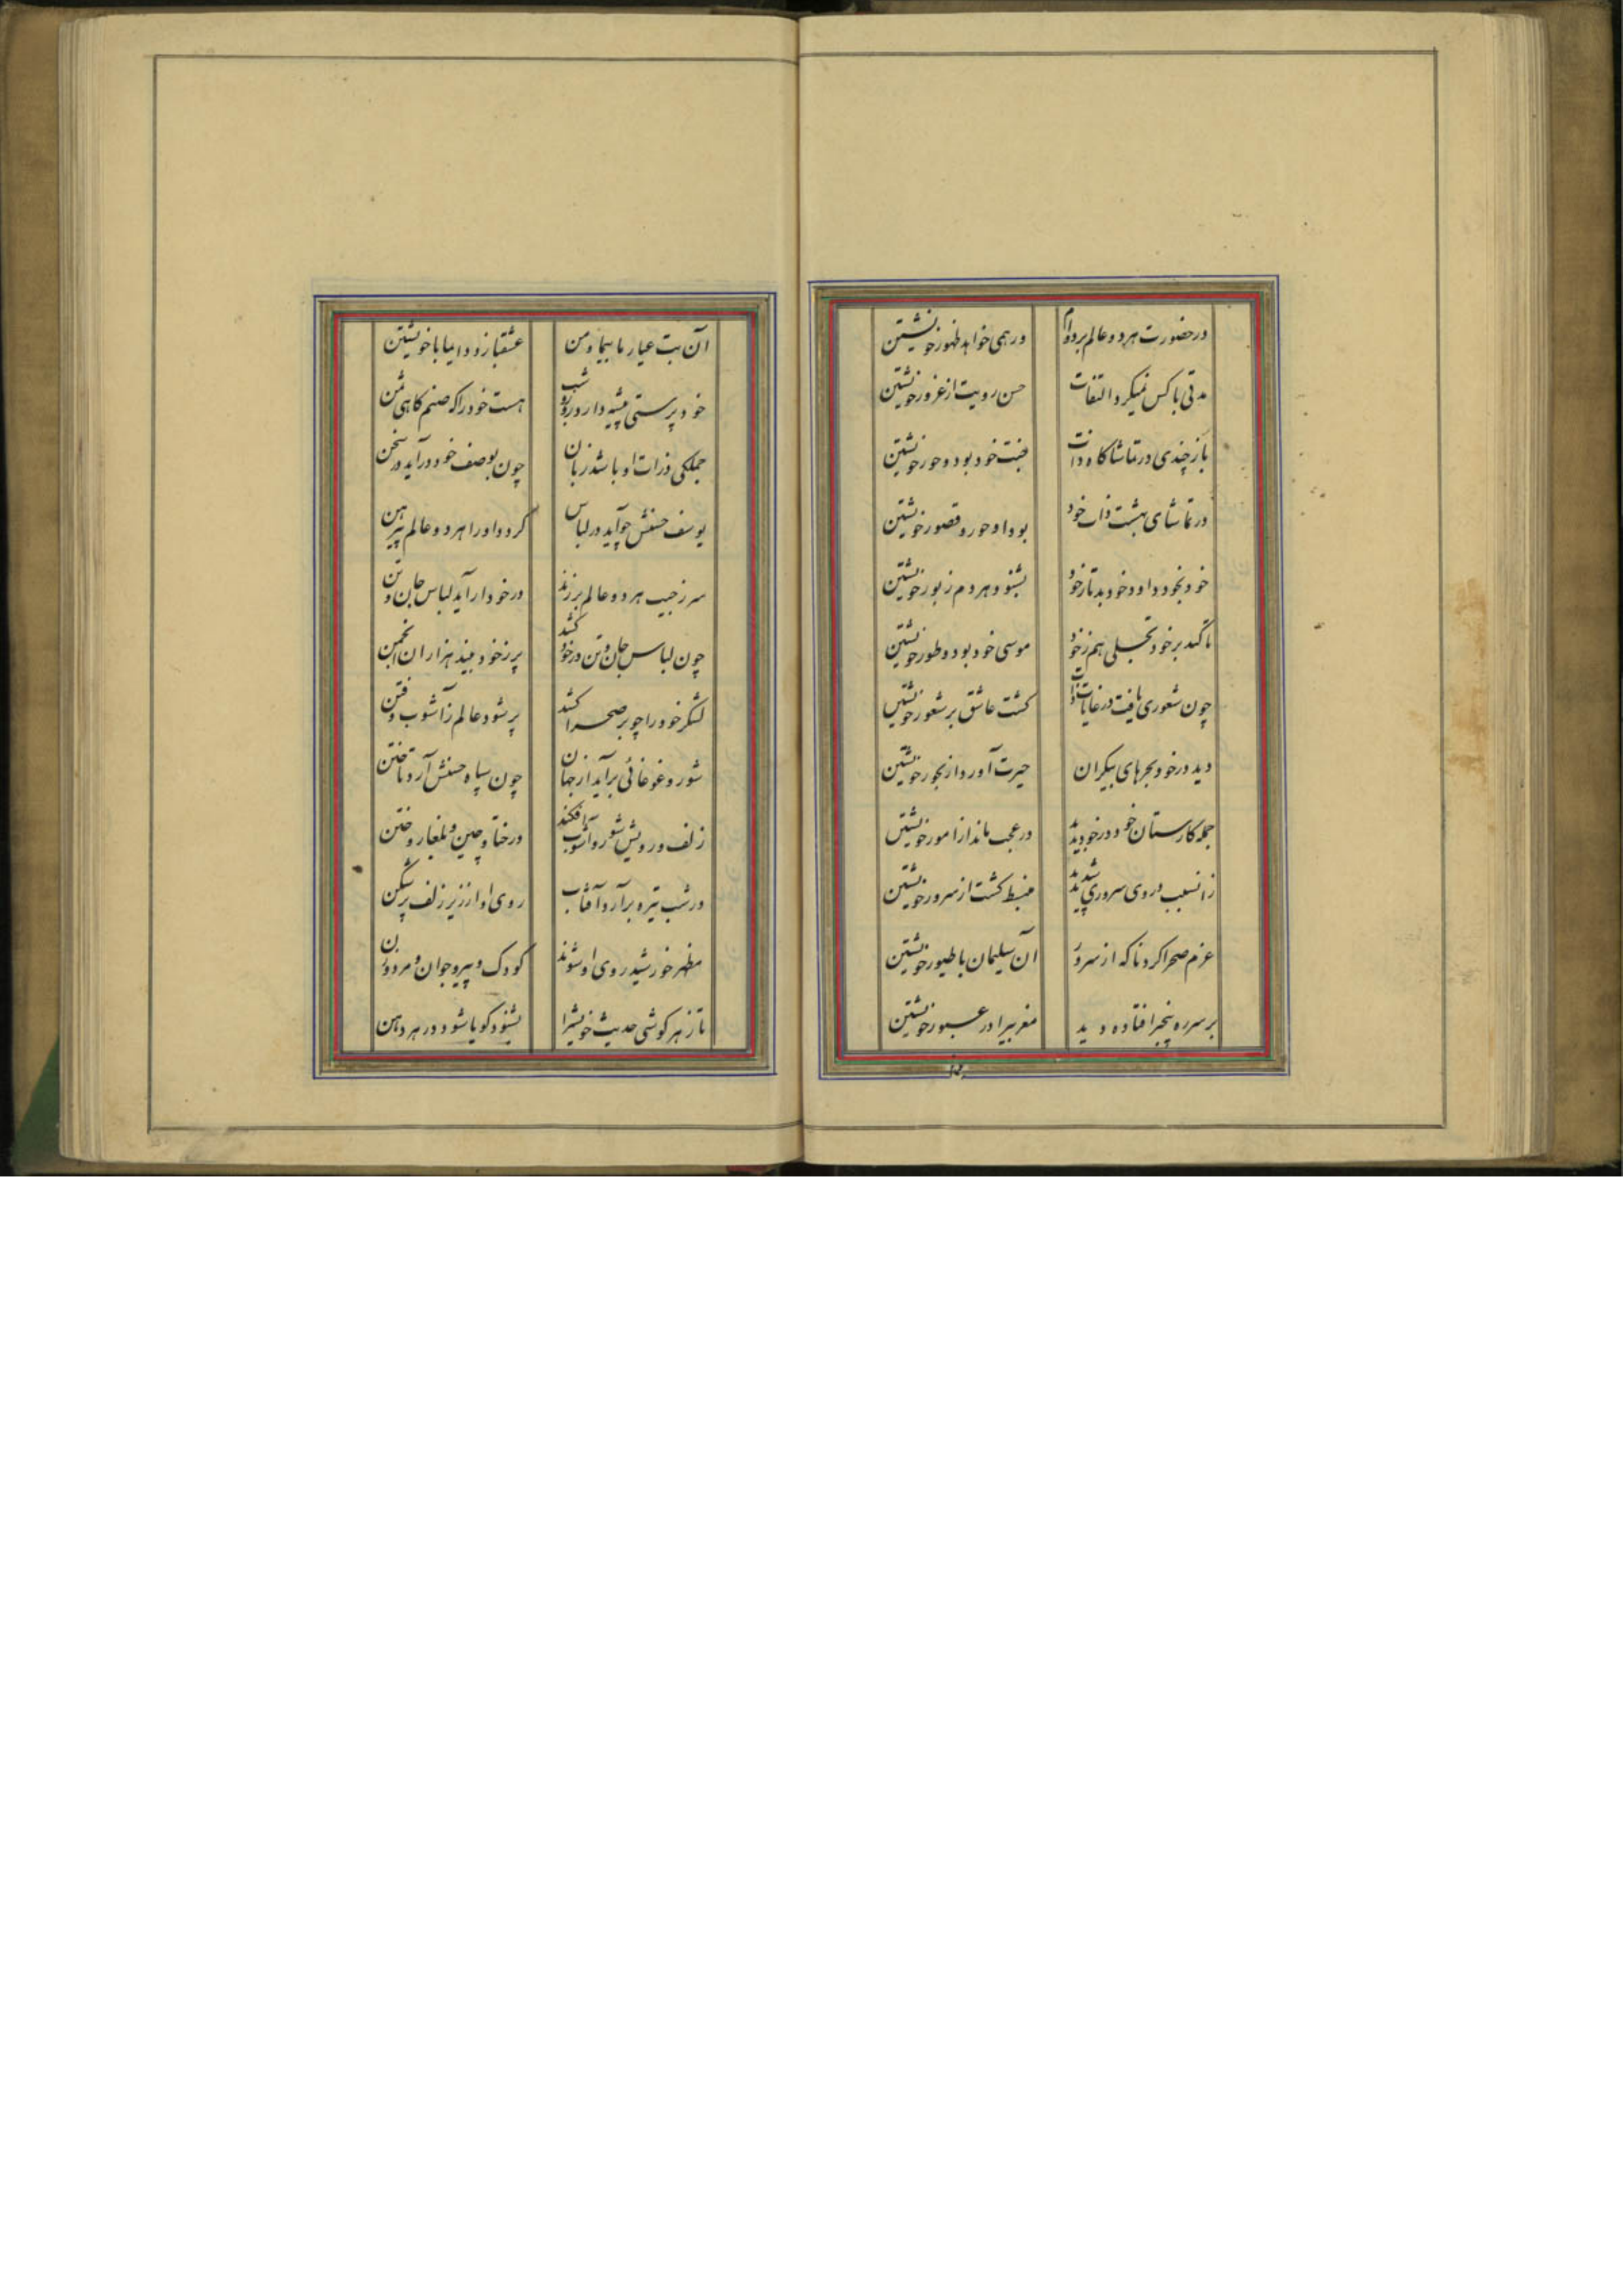 در حضورت هر دو عالم بر دوام ور همی خواهد ظهور خویشتن
مدتی با کس نمیکرد التفات حسن رویت از غرور خویشتن
باز چندی در تماشاگاه ذات جنت خود بود و حور خویشتن
در تماشای بهشت ذات خود بود او حور و قصور خویشتن
خود بخود داود خود بد تا ز خود بشنود هر دم زبور خویشتن
تا کند بر خود تجلی هم ز خود موسی خود بود و طور خویشتن
چون شعوری یافت در غایات ذات گشت عاشق بر شعور خویشتن
دید در خود بحرهای بیکران حیرت آورد از بحور خویشتن
جمله کارستان خود در خود بدید در عجب ماند از امور خویشتن
زانسبب در وی سروری شد پدید منبسط گشت از سرور خویشتن
عزم صحرا کرد ناگه از سرور آن سلیمان با طیور خویشتن
بر سر ره بیخبر افتاده دید مغربیرا در عبور خویشتن
آن بت عیار ما بیما و من عشقبازد دایما با خویشتن
خود پرستی پیشه دارد روز و شب هست خود را گه صنم گاهی شمن
جملگی ذرات او باشد زبان چون بوصف خود درآید در سخن
یوسف حسنش چو آید در لباس گردد او را هر دو عالم پیرهن
سر ز جیب هر دو عالم برزند در خود ار آید لباس جان و تن
چون لباس جان و تن در خود کشد پر ز خود بیند هزاران انجمن
لشکر خود را چو بر صحرا کشد پر شود عالم ز آشوب و فتن
شور و غوغائی برآید از جهان چون سپاه حسنش آرد تاختن
زلف و رویش شور و آشوب افکند در ختا و چین و بلغار و ختن
در شب تیره برآرد آفتاب روی او از زیر زلف پرشکن
مظهر خورشید روی او شوند کودک و پیر و جوان و مرد و زن
تا ز هر گوشی حدیث خویشرا بشنود گویا شود در هر دهن